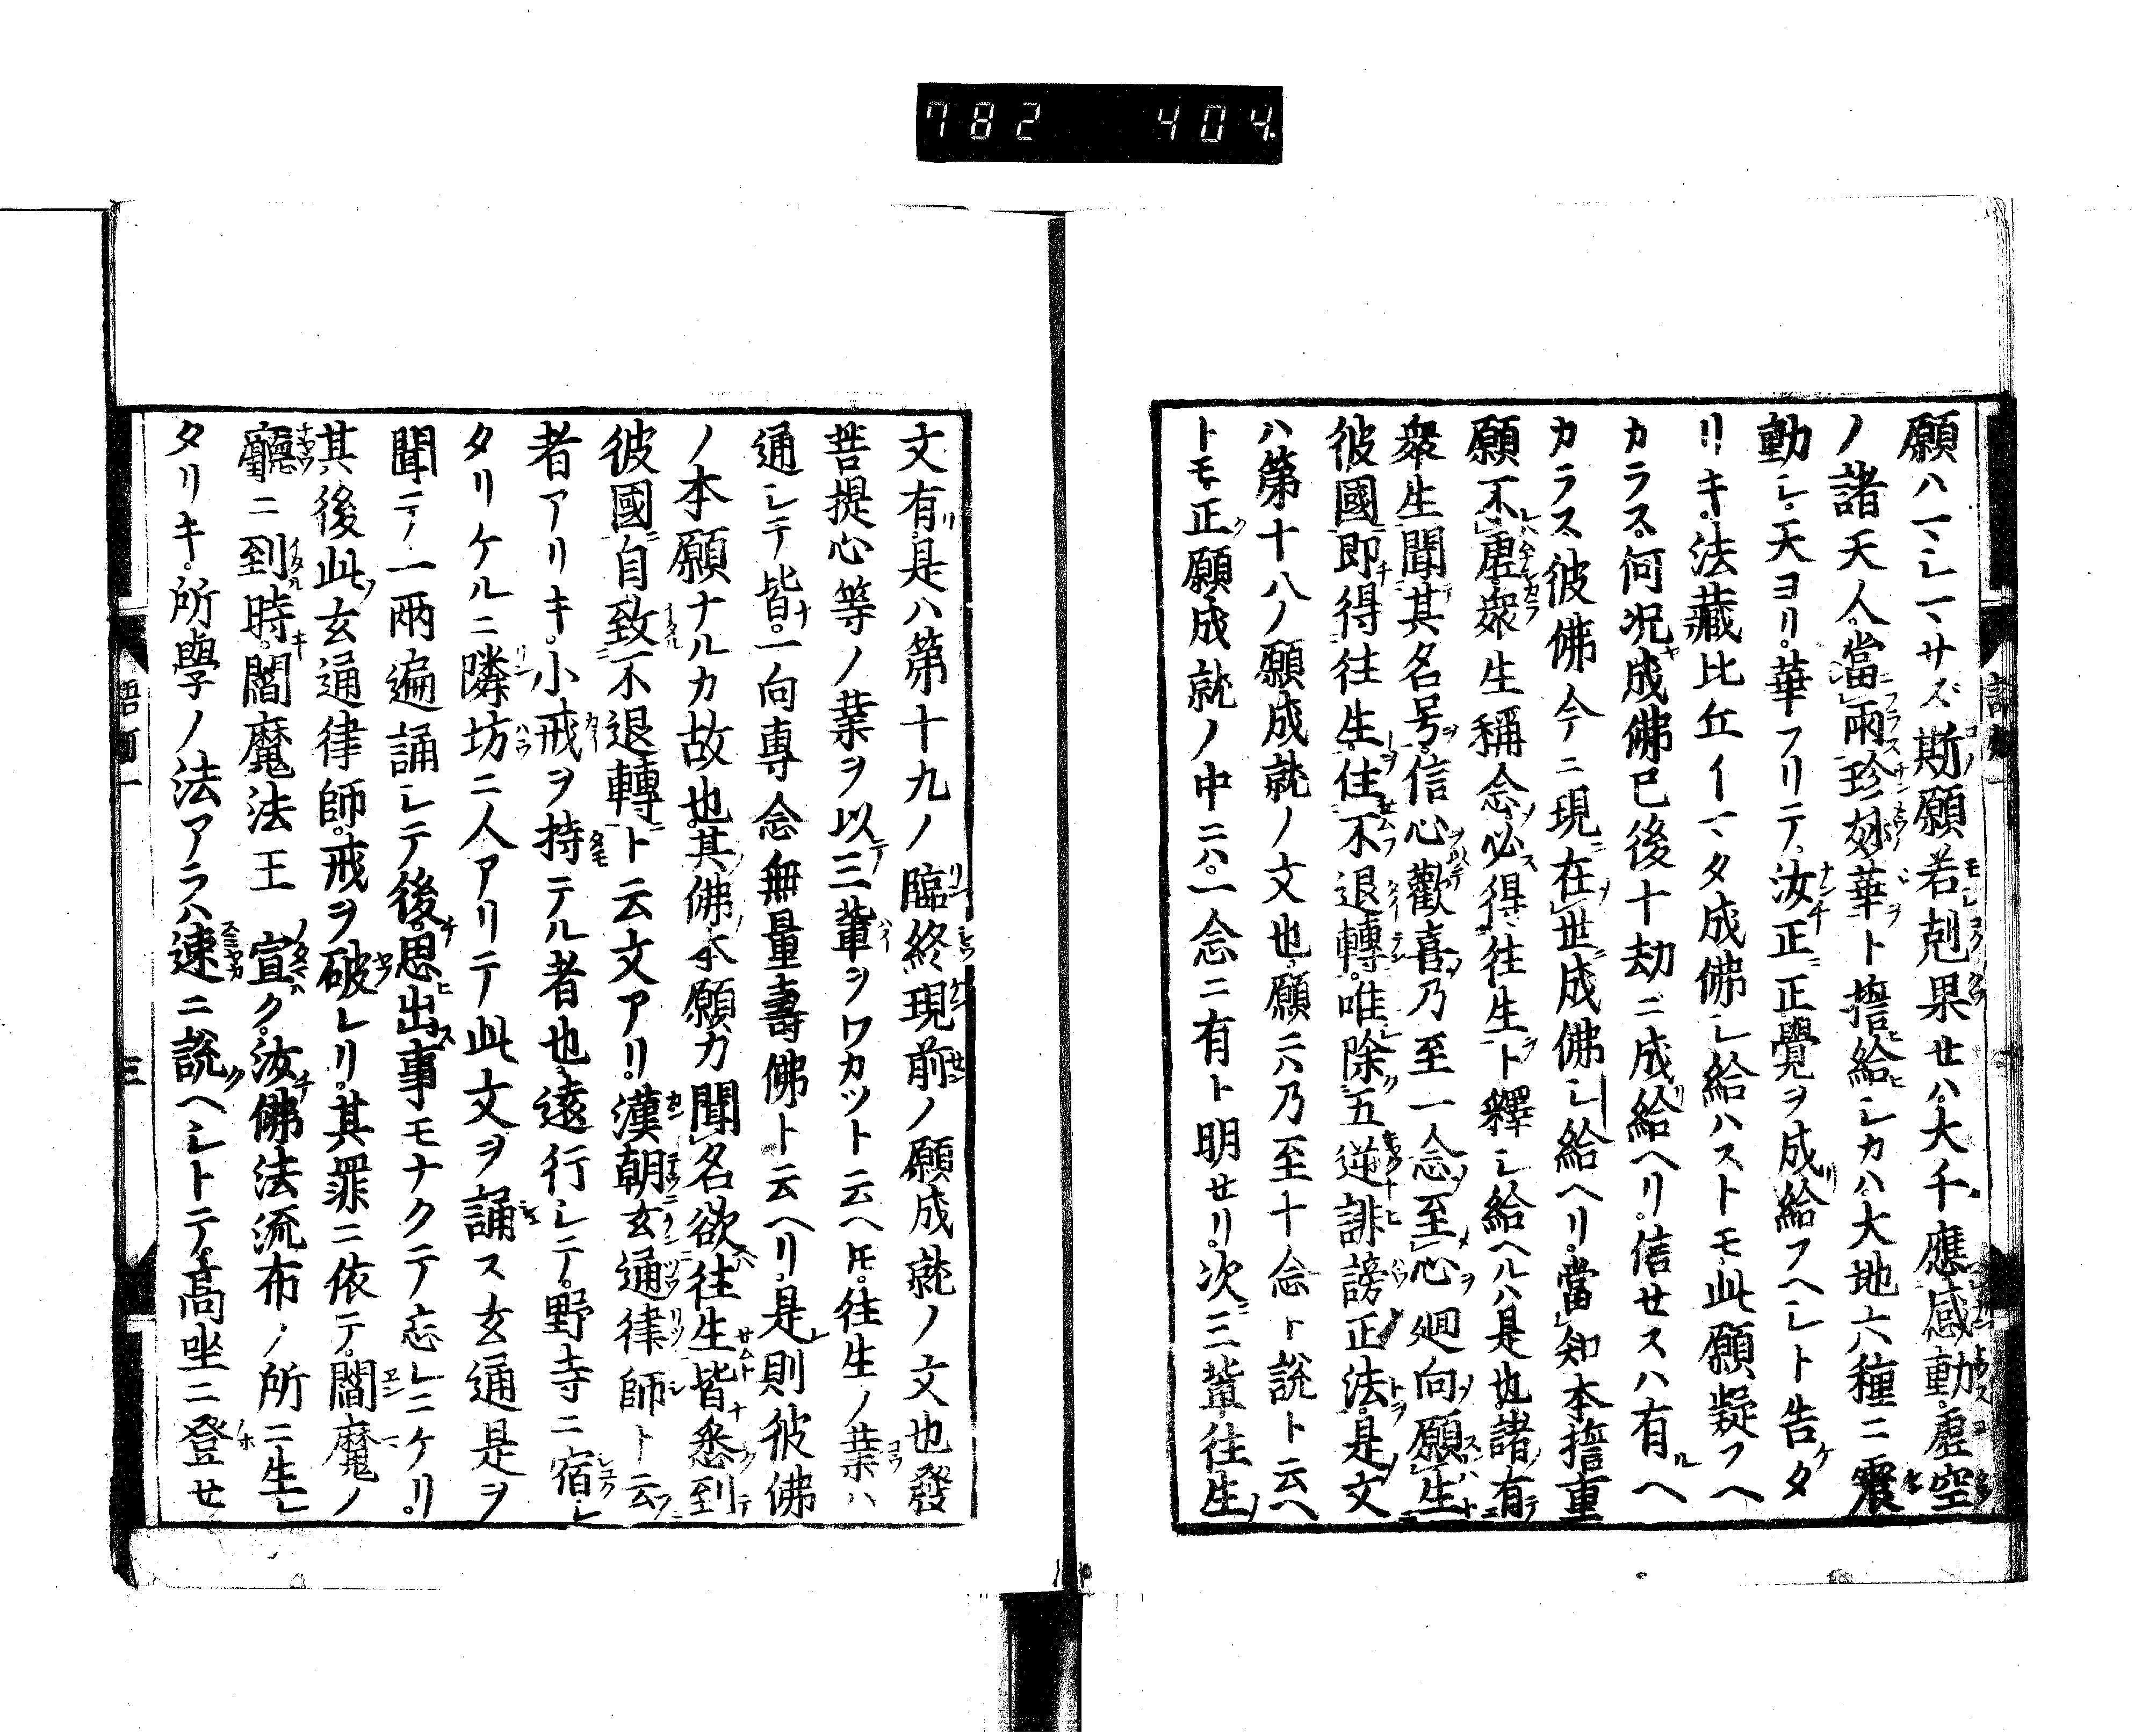 782 404
願ハマシマサズ斯願若剋果セハ大千應感動虚空
ノ諸天人當雨珍妙華ト誓給ヒシカハ大地六種ニ震
動シ天ヨリ華フリテ汝正ニ正覺ヲ成給フヘシト告タ
リキ法藏比丘イマタ成佛シ給ハストモ此願疑フヘ
カラス何況成佛已後十劫ニ成給ヘリ信セスハ有ヘ
カラス彼佛今ニ現在世成佛シ給ヘリ當知本誓重
願不虚衆生稱念必得往生ト釋シ給ヘルハ是也諸有
衆生聞其名号信心歡喜乃至一念至心廻向願生
彼國即得往生住不退轉唯除五逆誹謗正法是文
ハ第十八ノ願成就ノ文也願ニハ乃至十念ト説ト云ヘ
トモ正願成就ノ中ニハ一念ニ有ト明セリ次三輩往生
文有是ハ第十九ノ臨終現前ノ願成就ノ文也發
菩提心等ノ業ヲ以三輩ヲワカツト云ヘトモ往生ノ業ハ
通シテ皆一向專念無量壽佛ト云ヘリ是則彼佛
ノ本願ナルカ故也其佛本願力聞名欲往生皆悉到
彼國自致不退轉ト云文アリ漢朝玄通律師ト云
者アリキ小戒ヲ持テル者也遠行シテ野寺ニ宿シ
タリケルニ隣坊ニ人アリテ此文ヲ誦ス玄通是ヲ
聞テ一兩遍誦シテ後思出事モナクテ忘レニケリ
其後此玄通律師戒ヲ破レリ其罪ニ依テ閻魔ノ
廳ニ到時閻魔法王宣ク汝佛法流布ノ所ニ生レ
タリキ所學ノ法アラハ速ニ説ヘシトテ高坐ニ登セ
三